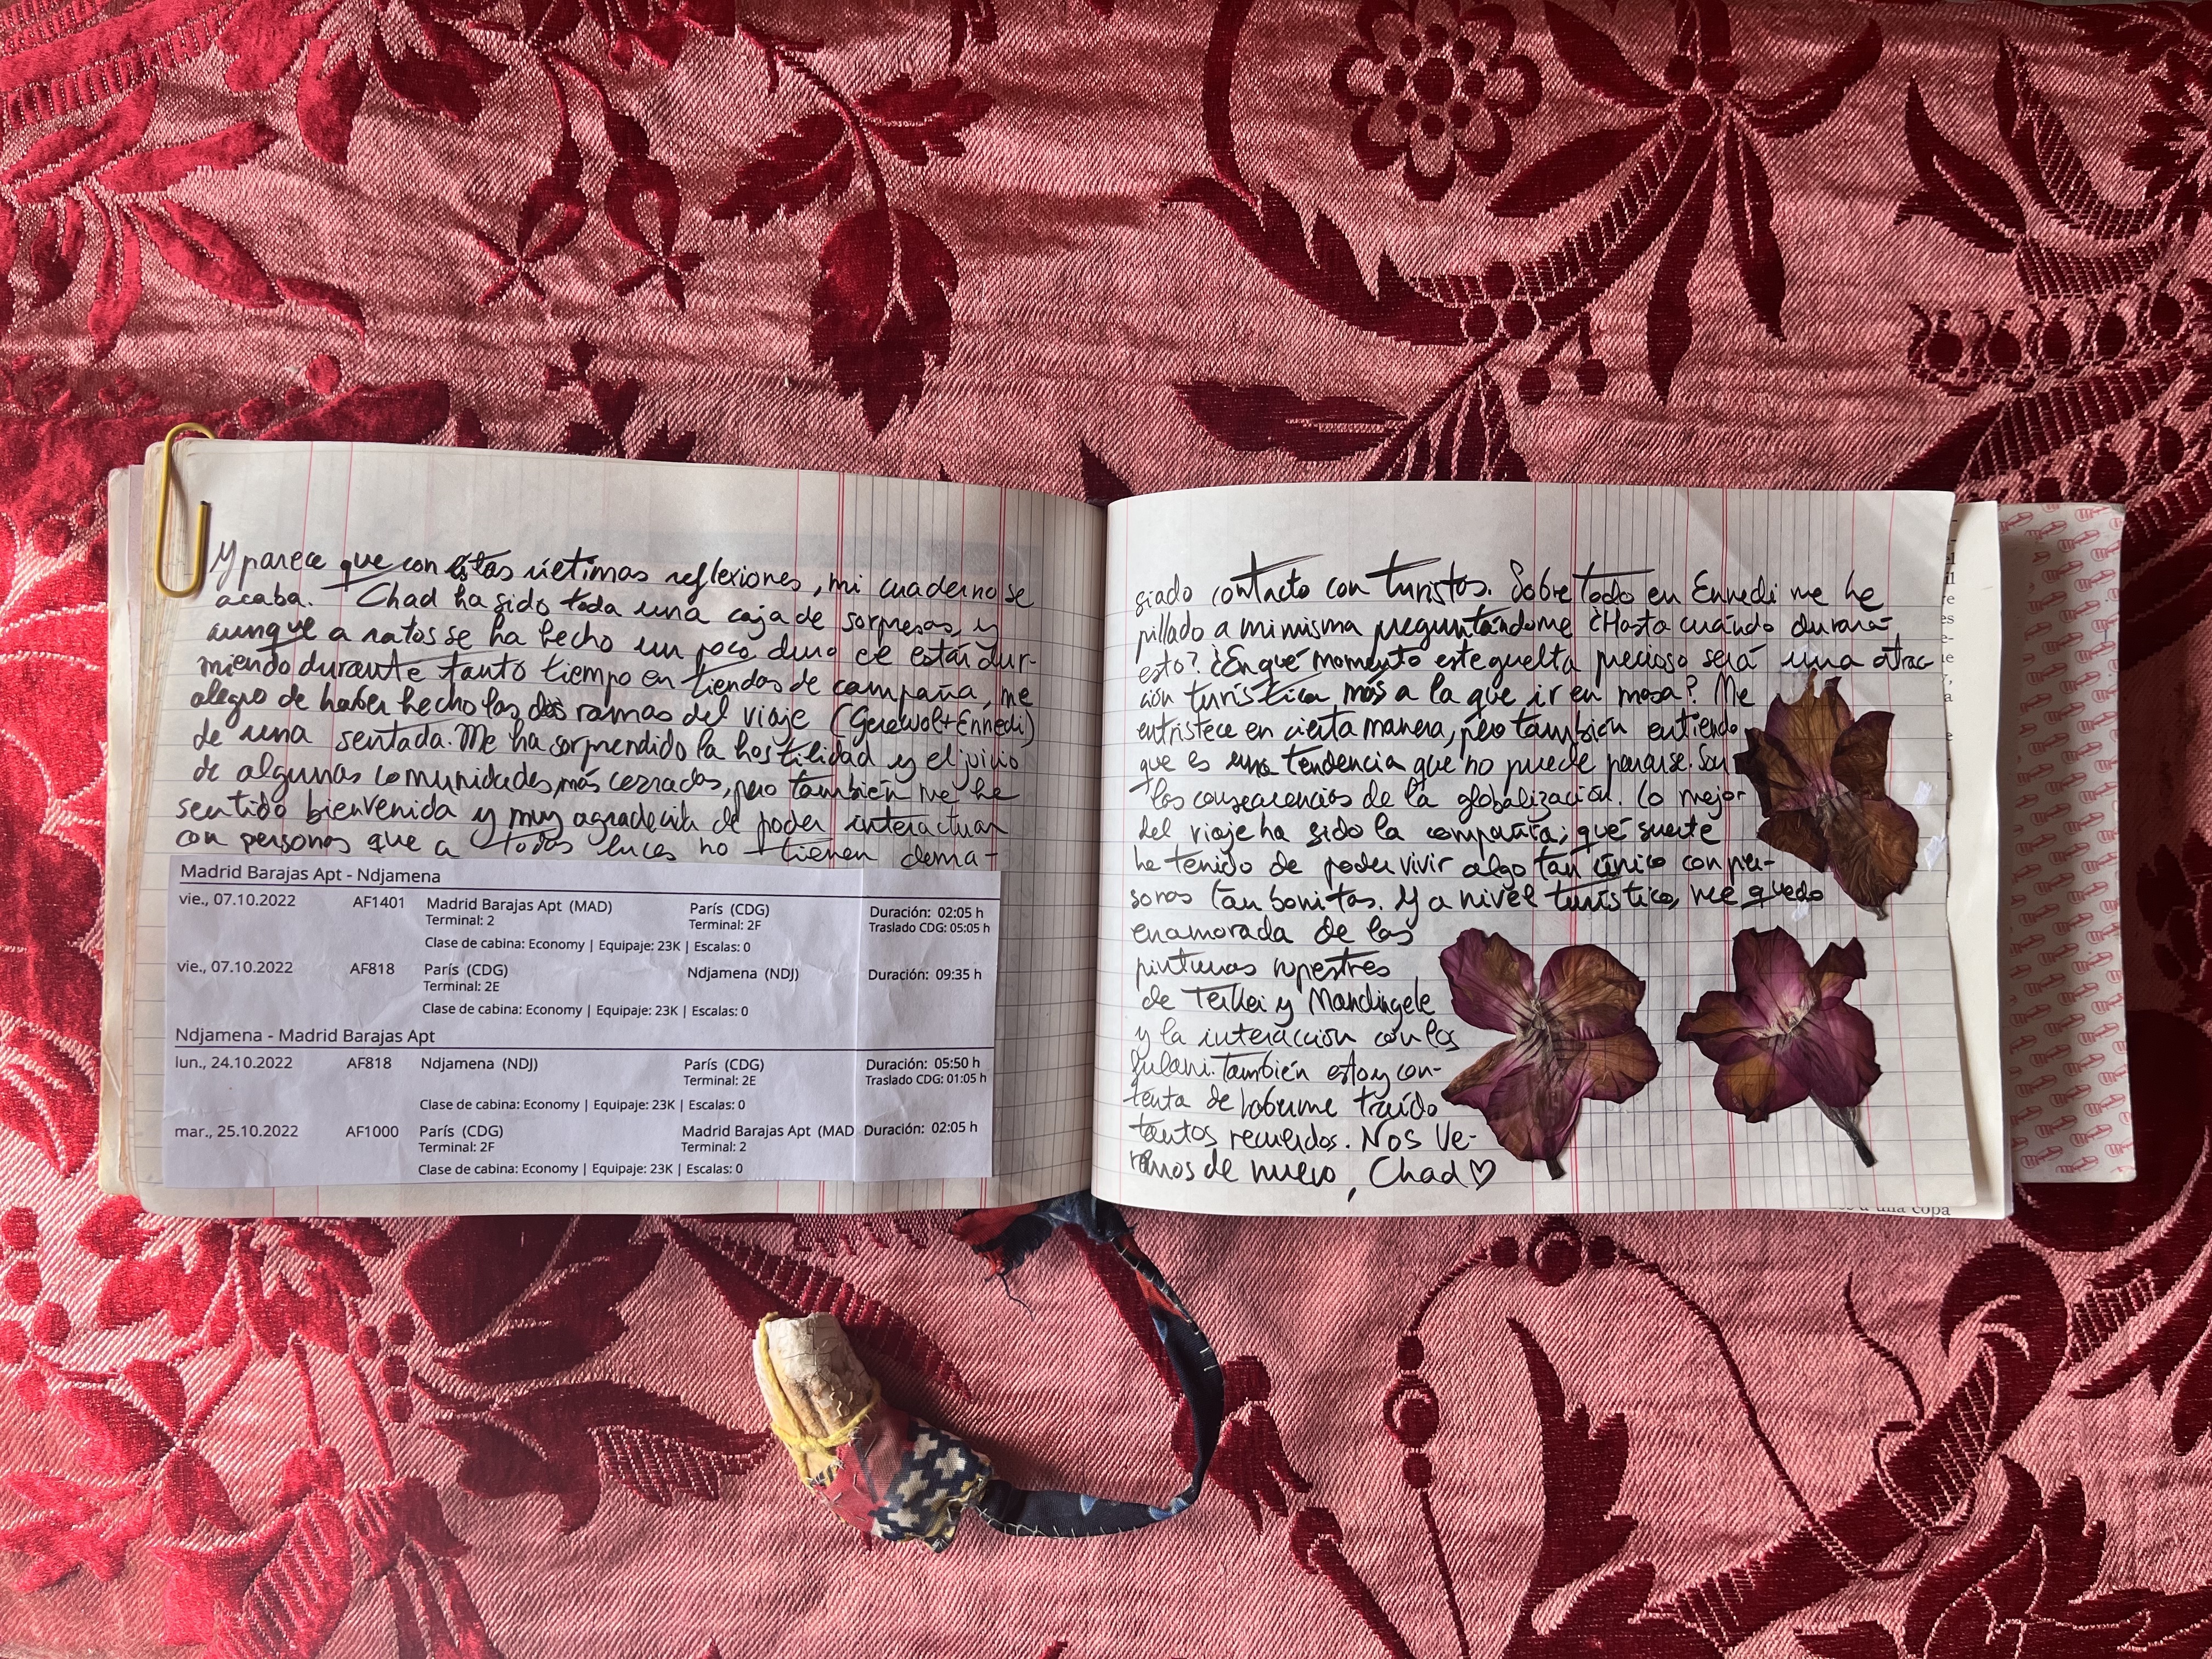 Y parece que con estas últimas reflexiones, mi cuaderno se
acaba. Chad ha sido toda una caja de sorpresas, y
aunque a ratos se ha hecho un poco duro el estar dur-
miendo durante tanto tiempo en tiendas de campaña, me
alegro de haber hecho las dos ramas del viaje (Gerewol+Ennedi)
de una sentada. Me ha sorprendido la hostilidad y el juicio
de algunas comunidades más cerradas, pero también me he
sentido bienvenida y muy agradecida de poder interactuar
con personas que a todas luces no tienen dema-
Madrid Barajas Apt - Ndjamena
vie., 07.10.2022 AF1401 Madrid Barajas Apt (MAD) París (CDG) Duración: 02:05 h
Terminal: 2 Terminal: 2F Traslado CDG: 05:05 h
Clase de cabina: Economy | Equipaje: 23K | Escalas: 0
vie., 07.10.2022 AF818 París (CDG) Ndjamena (NDJ) Duración: 09:35 h
Terminal: 2E
Clase de cabina: Economy | Equipaje: 23K | Escalas: 0
Ndjamena - Madrid Barajas Apt
lun., 24.10.2022 AF818 Ndjamena (NDJ) París (CDG) Duración: 05:50 h
Terminal: 2E Traslado CDG: 01:05 h
Clase de cabina: Economy | Equipaje: 23K | Escalas: 0
mar., 25.10.2022 AF1000 París (CDG) Madrid Barajas Apt (MAD Duración: 02:05 h
Terminal: 2F Terminal: 2
Clase de cabina: Economy | Equipaje: 23K | Escalas: 0
siado contacto con turistos. Sobre todo en Ennedi me he
pillado a mi misma preguntándome ¿Hasta cuándo durará
esto? ¿En qué momento este guelta precioso será una atrac-
ción turística más a la que ir en masa? Me
entristece en cierta manera, pero también entiendo
que es una tendencia que no puede pararse. Son
las consecuencias de la globalización. Lo mejor
del viaje ha sido la compañía; qué suerte
he tenido de poder vivir algo tan único con per-
sonas tan bonitas. Y a nivel turístico, me quedo
enamorada de las
pinturas rupestres
de Terkei y Mandingele
y la interacción con los
fulani. También estoy con-
tenta de haberme traído
tantos recuerdos. Nos ve-
remos de nuevo, Chad♡
a una copa